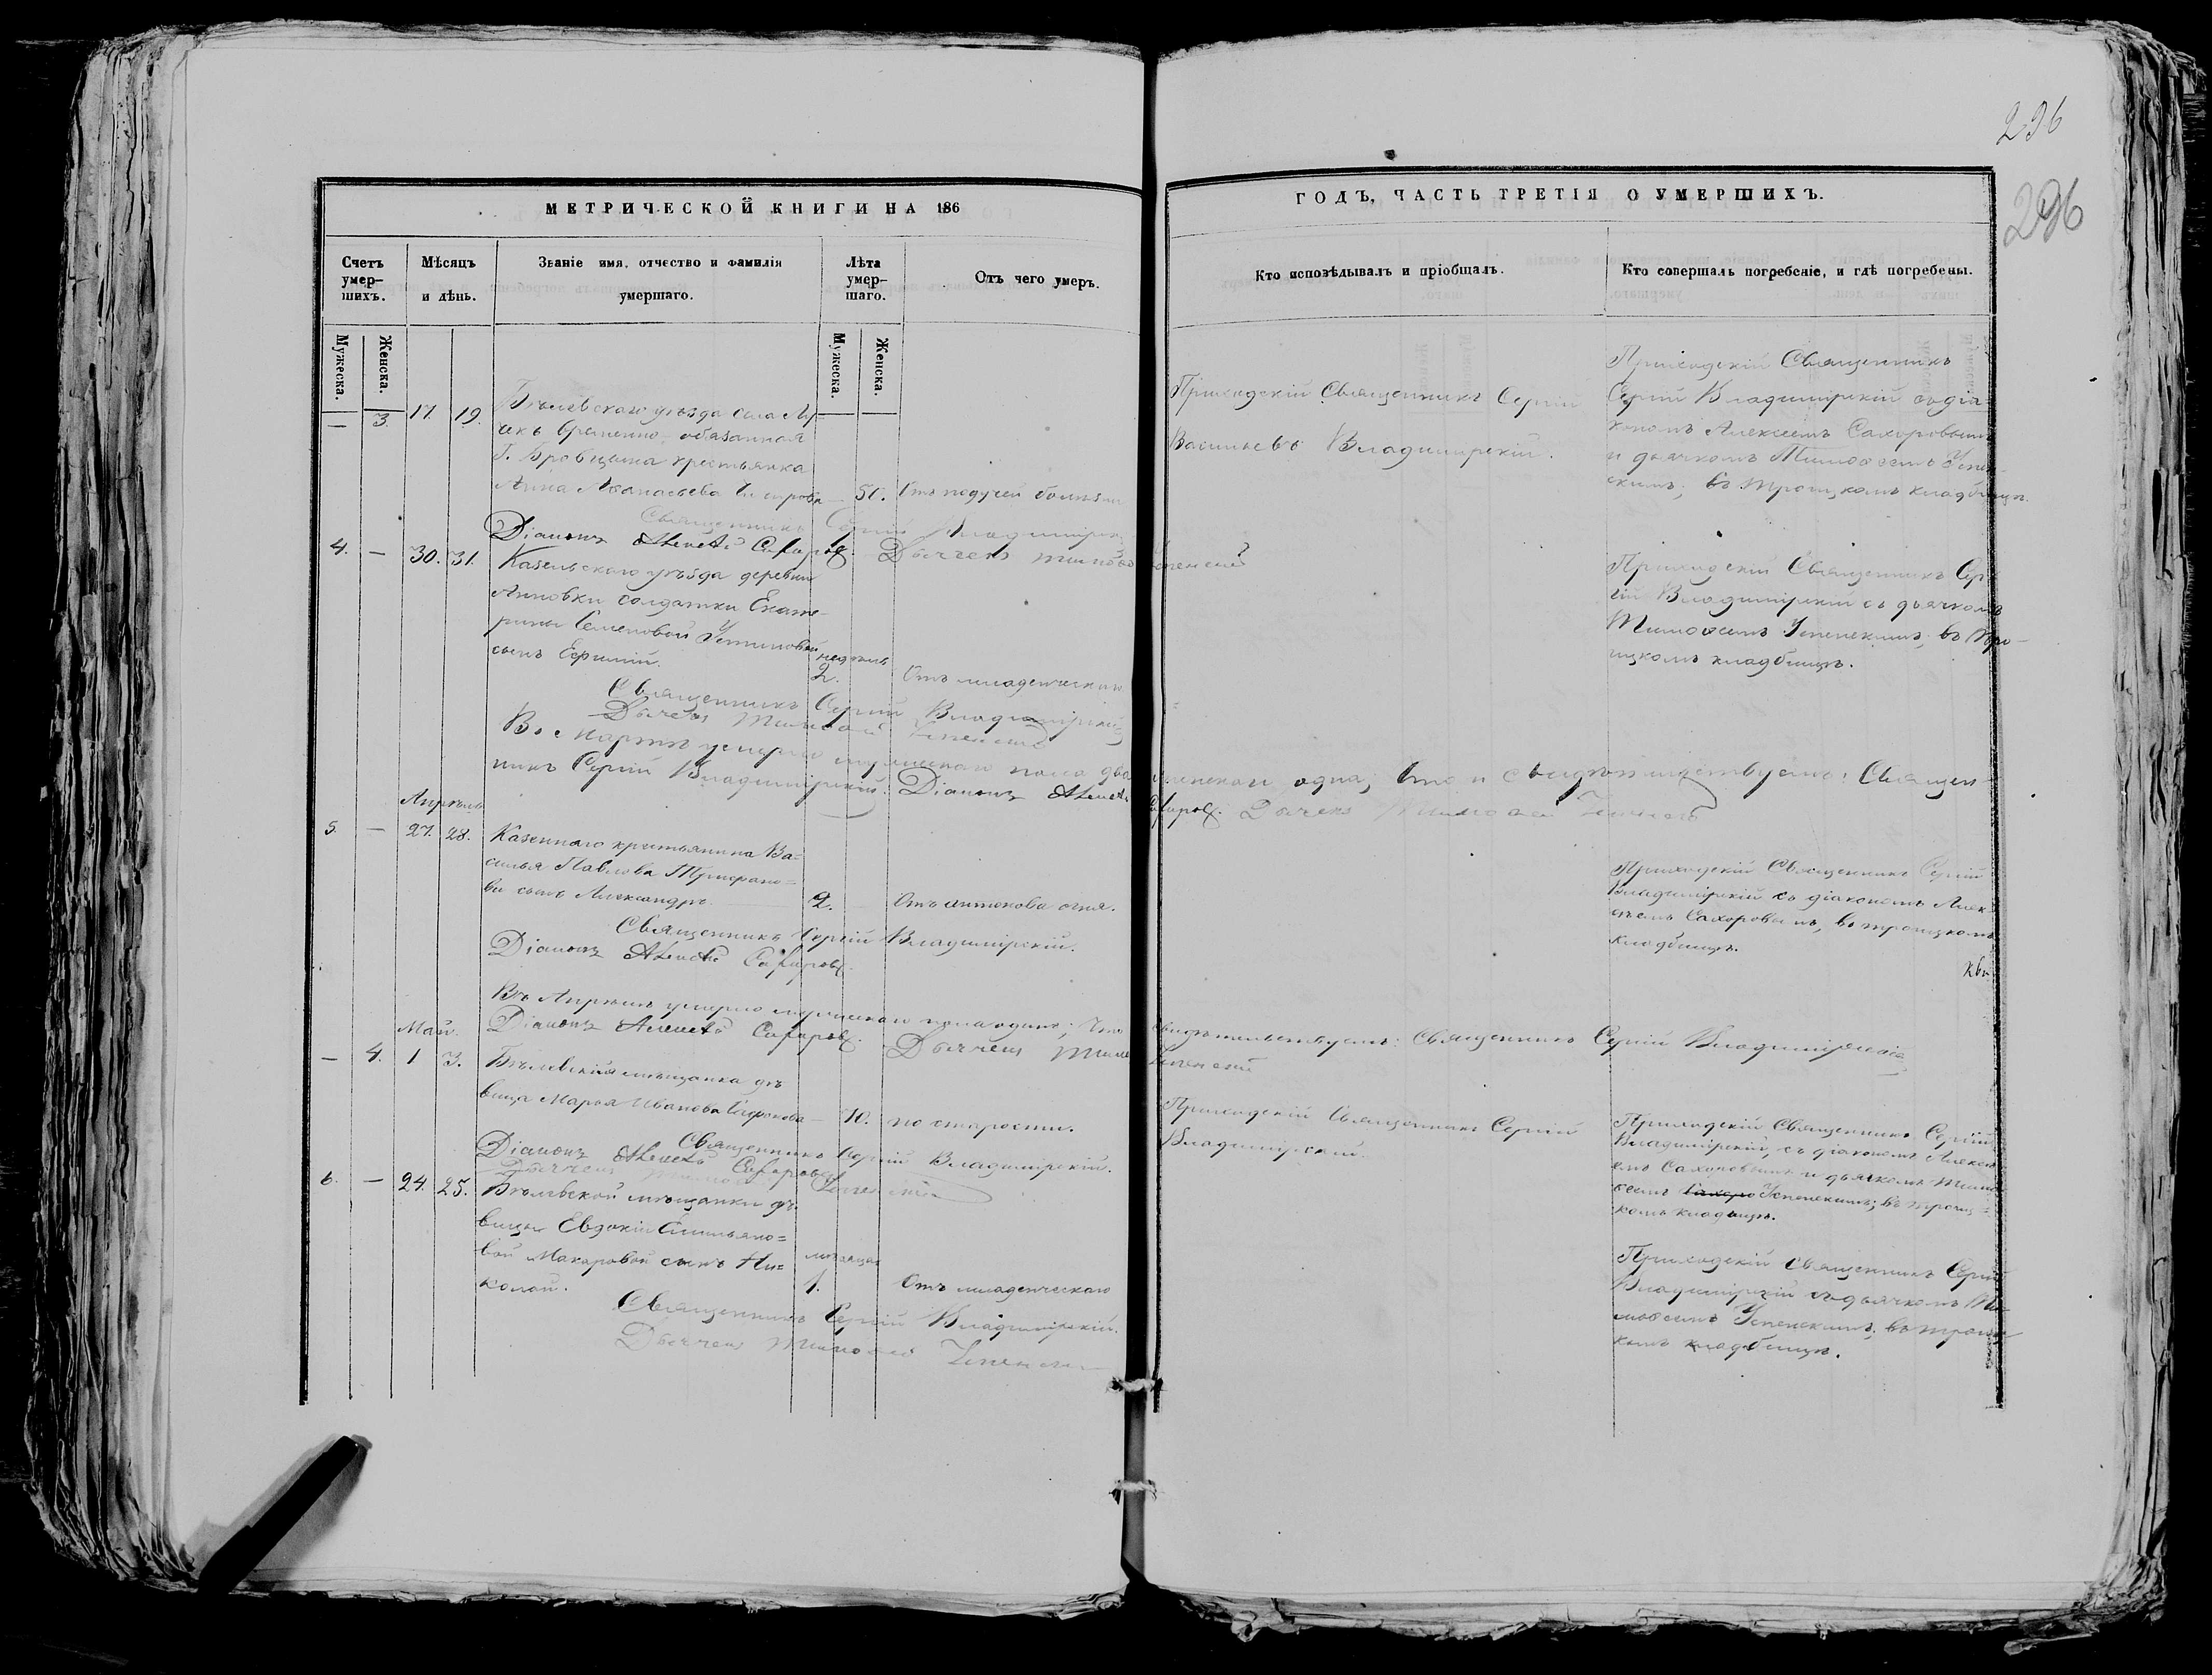 296
296
МЕТРИЧЕСКОЙ КНИГИ НА 186
ГОДЪ, ЧАСТЬ ТРЕТІЯ О УМЕРШИХЪ.
Счетъ умер-шихъ.
Мѣсяцъ и день.
Званіе имя, отчество и фамилія умершаго.
Лѣта умер-шаго.
Отъ чего умеръ.
Кто исповѣдывалъ и пріобщалъ.
Кто совершалъ погребеніе, и гдѣ погребены.
Мужеска.
Женска.
Мужеска.
Женска.
— 3. 17. 19.
Бѣлевскаго уѣзда села
временно-обязанная
Г. крестьянка
Анна Аѳанасьева
— 50. Отъ падучей болѣзни
Приходскій Священникъ Сергій
Васильевъ Владимірскій.
Приходскій Священникъ
Сергій Владимірскій съ діа-
кономъ Алексѣемъ Сахаровымъ
и дьячкомъ Тимоѳеемъ Успен-
скимъ; въ Троицкомъ кладбищѣ.
Священникъ Сергій Владимірскій
Діаконъ Алексѣй Сахаровъ. Дьячекъ Тимоѳей Успенскій
4. — 30. 31.
уѣзда деревни
солдатки Екате-
рины Семеновой Устиновой
сынъ Ефимій.
недѣль
2. Отъ младенческаго
Приходскій Священникъ Сер-
гій Владимірскій съ дьячкомъ
Тимоѳеемъ Успенскимъ, въ Тро-
ицкомъ кладбищѣ.
Священникъ Сергій Владимірскій
Дьячекъ Тимоѳей Успенскій
Въ Мартѣ умерло мужескаго пола два женскаго одна; Что и свидѣтельствуемъ: Священ-
никъ Сергій Владимірскій. Діаконъ Алексѣй Сахаровъ. Дьячекъ Тимоѳей Успенскій
Апрѣль
5. — 27. 28.
Казеннаго крестьянина Ва-
силья Павлова
ва сынъ Александръ
2. Отъ антонова огня.
Приходскій Священникъ Сергій
Владимірскій съ діакономъ Алек-
сѣемъ Сахаровымъ, въ троицкомъ
кладбищѣ.
Священникъ Сергій Владимірскій.
Діаконъ Алексѣй Сахаровъ.
Въ Апрѣлѣ умерло мужескаго пола одинъ; Что свидѣтельствуемъ: Священникъ Сергій Владимірскій
Діаконъ Алексѣй Сахаровъ. Дьячекъ Тимоѳей Успенскій
Май.
— 4. 1 3.
Бѣлевская мѣщанка дѣ-
вица Марья Иванова
— 70. по старости.
Приходскій Священникъ Сергій
Владимірскій.
Приходскій Священникъ Сергій
Владимірскій, съ діакономъ Алексѣ-
емъ Сахаровымъ и дьячкомъ Тимо-
ѳеемъ Успенскимъ; въ троиц-
комъ кладбищѣ.
Священникъ Сергій Владимірскій.
Діаконъ Алексѣй Сахаровъ
Дьячекъ Тимоѳей Успенскій
6. — 24. 25.
Бѣлевской мѣщанки дѣ-
вицы Евдокіи Емильяно-
вой Макаровой сынъ Ни-
колай.
мѣсяца
1. Отъ младенческаго
Приходскій Священникъ Сергій
Владимірскій съ дьячкомъ Ти-
моѳеемъ Успенскимъ; въ троиц-
комъ кладбищѣ.
Священникъ Сергій Владимірскій.
Дьячекъ Тимоѳей Успенскій